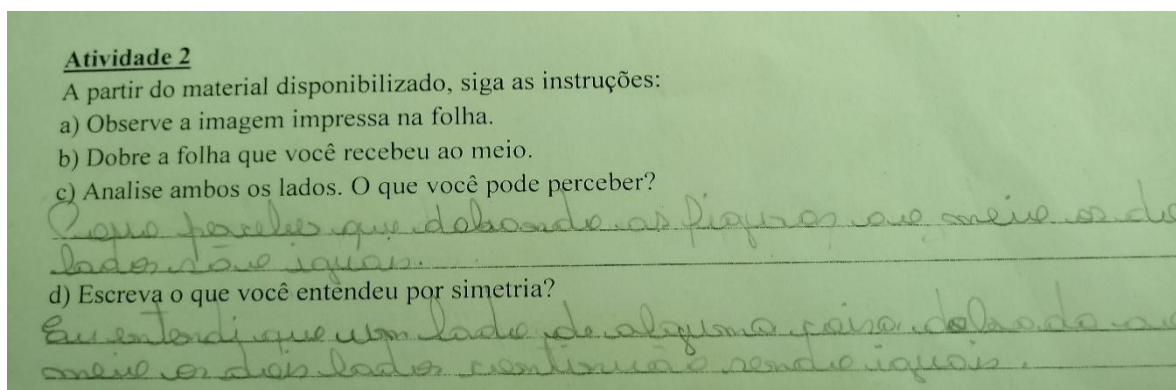 Atividade 2
A partir do material disponibilizado, siga as instruções:
a) Observe a imagem impressa na folha.
b) Dobre a folha que você recebeu ao meio.
c) Analise ambos os lados. O que você pode perceber?
que dobrando as figuras ao meio os
lados são iguais.
d) Escreva o que você entendeu por simetria?
Eu entendi que um lado de alguma coisa dobrada ao
meio os dois lados continuão sendo iguais.